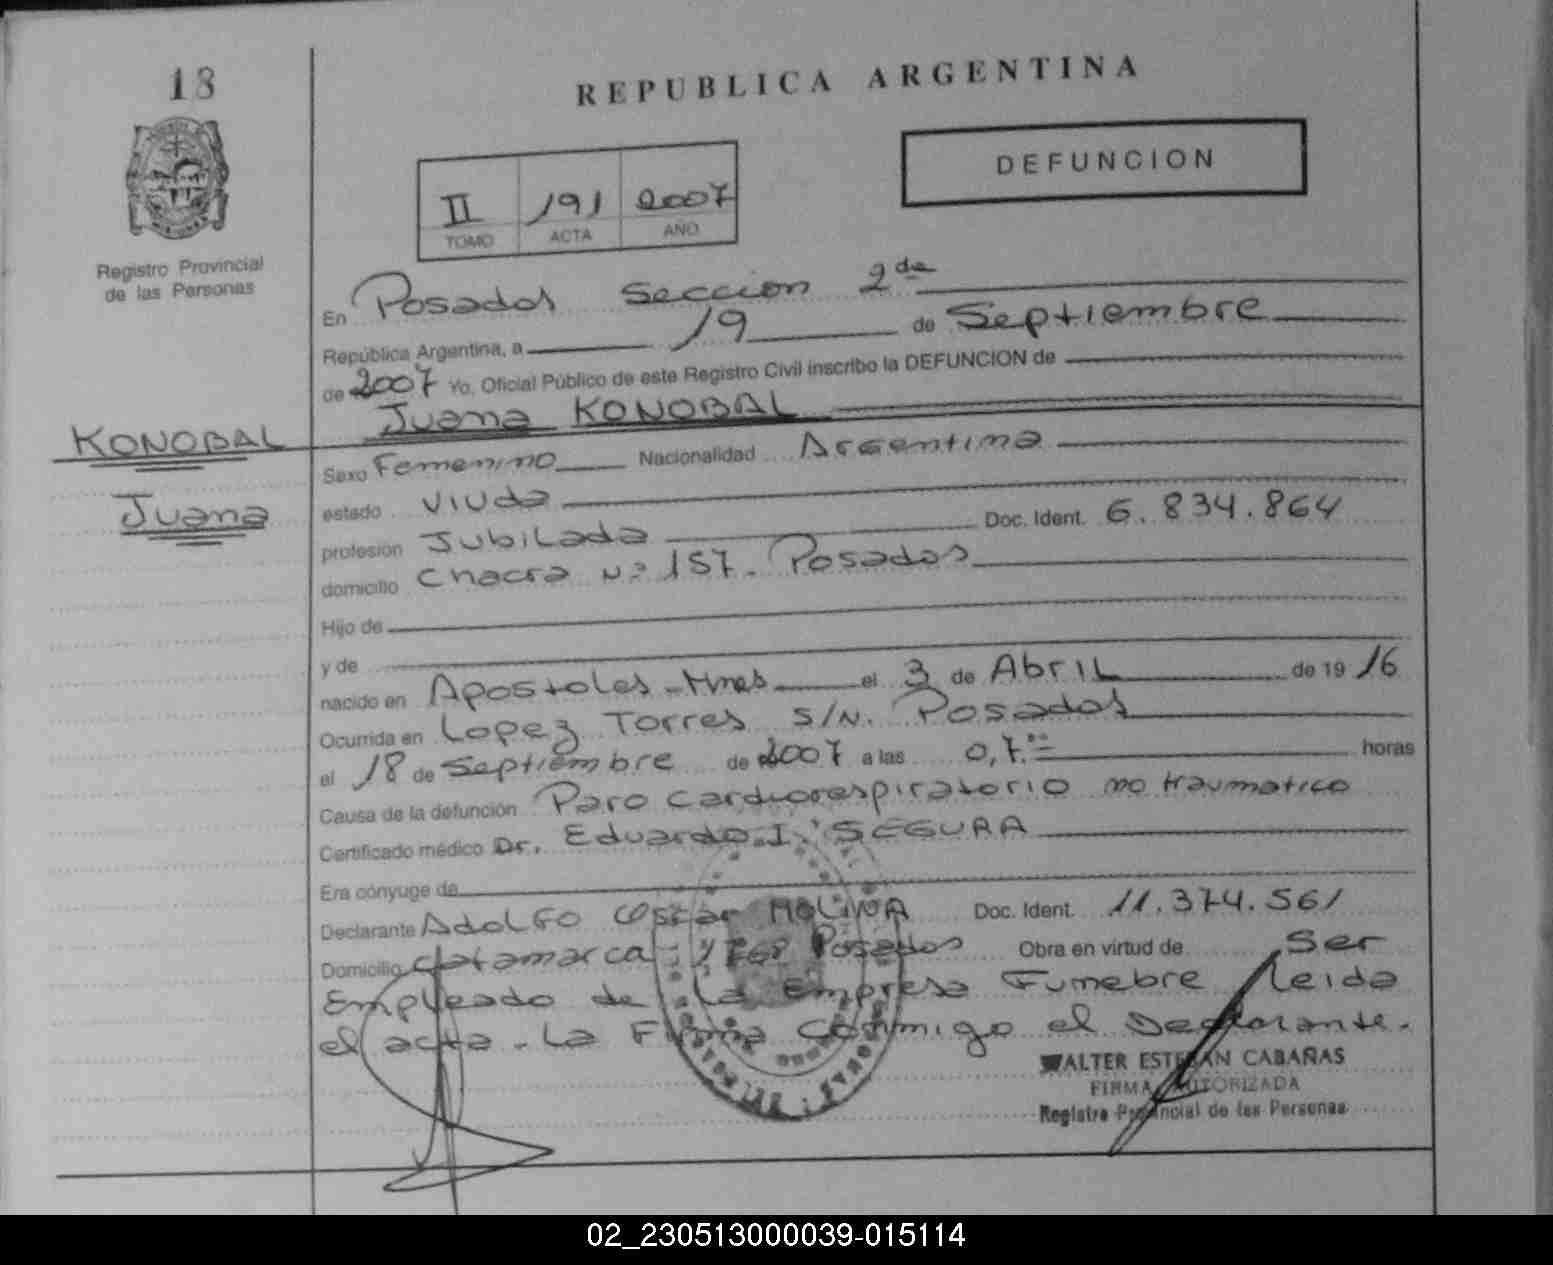 18
REPUBLICA ARGENTINA
DEFUNCION
II 191 2007
TOMO ACTA AÑO
Registro Provincial
de las Personas
En Posadas Seccion 2da
República Argentina, a 19 de Septiembre
de 2007 Yo, Oficial Público de este Registro Civil inscribo la DEFUNCION de
Juana KONOBAL
KONOBAL
Juana
Sexo Femenino Nacionalidad Argentina
estado Viuda
profesión Jubilada Doc. Ident. 6.834.864
domicilio Chacra Nº 157. Posadas
Hijo de
y de
nacido en Apostoles - Mnes el 3 de Abril de 19 16
Ocurrida en Lopez Torres S/N. Posadas
el 18 de Septiembre de 2007 a las 0,7.00 horas
Causa de la defunción Paro cardiorespiratorio no traumatico
Certificado médico Dr. Eduardo I. SEGURA
Era cónyuge de
Declarante Adolfo Oscar Doc. Ident. 11.374.561
Domicilio Catamarca Posadas Obra en virtud de Ser
Empleado de la Empresa Funebre leida
el acta. La Firma Conmigo el Declarante.
WALTER ESTEBAN CABAÑAS
FIRMA AUTORIZADA
Registro Provincial de las Personas
02_230513000039-015114